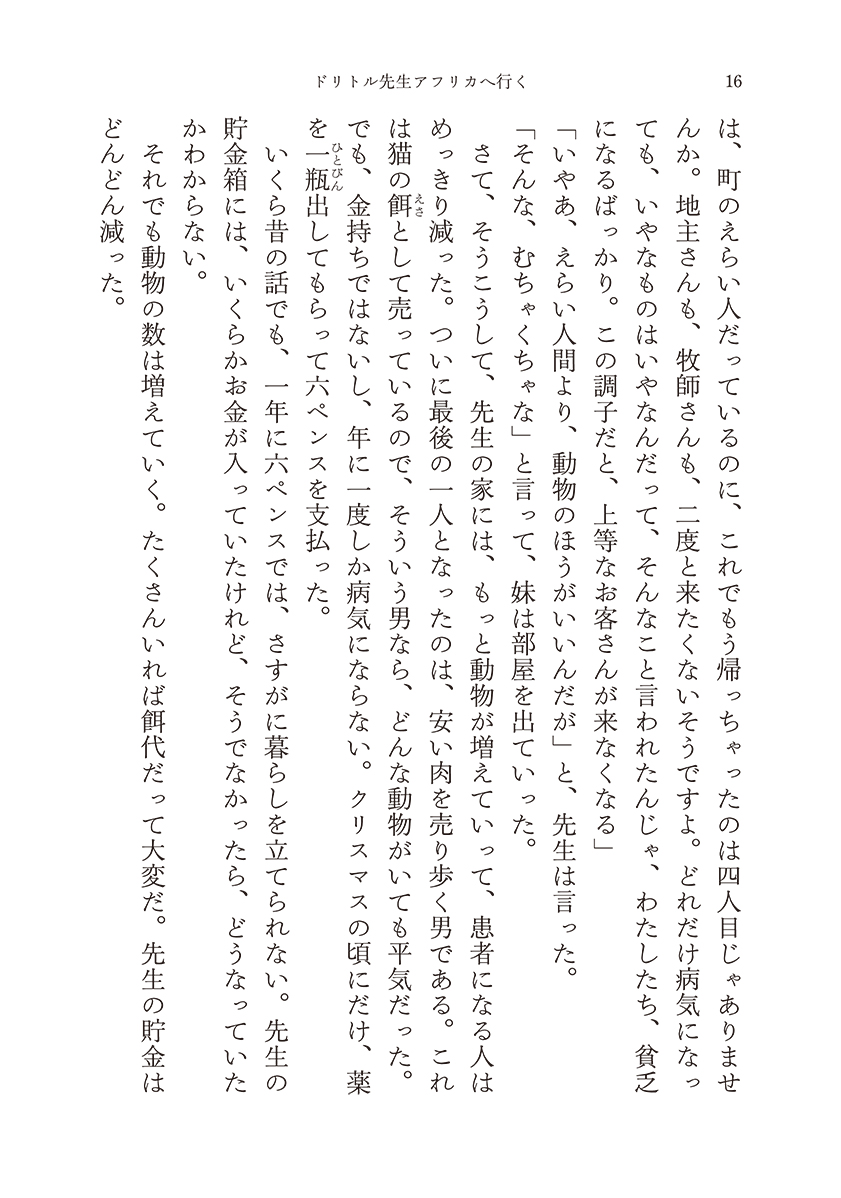 ドリトル先生アフリカへ行く
16
は、町のえらい人だっているのに、これでもう帰っちゃったのは四人目じゃありませ
んか。地主さんも、牧師さんも、二度と来たくないそうですよ。どれだけ病気になっ
ても、いやなものはいやなんだって、そんなこと言われたんじゃ、わたしたち、貧乏
になるばっかり。この調子だと、上等なお客さんが来なくなる」
「いやあ、えらい人間より、動物のほうがいいんだが」と、先生は言った。
「そんな、むちゃくちゃな」と言って、妹は部屋を出ていった。
さて、そうこうして、先生の家には、もっと動物が増えていって、患者になる人は
めっきり減った。ついに最後の一人となったのは、安い肉を売り歩く男である。これ
は猫の餌えさとして売っているので、そういう男なら、どんな動物がいても平気だった。
でも、金持ちではないし、年に一度しか病気にならない。クリスマスの頃にだけ、薬
を一瓶ひとびん出してもらって六ペンスを支払った。
いくら昔の話でも、一年に六ペンスでは、さすがに暮らしを立てられない。先生の
貯金箱には、いくらかお金が入っていたけれど、そうでなかったら、どうなっていた
かわからない。
それでも動物の数は増えていく。たくさんいれば餌代だって大変だ。先生の貯金は
どんどん減った。